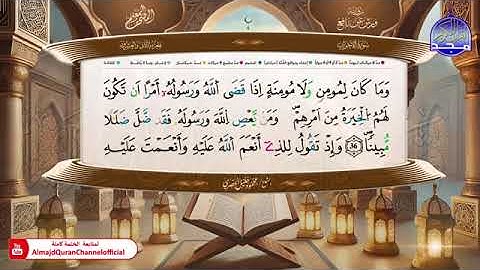 سورة الأحزاب
وَمَا كَانَ لِمُومِنٖ وَلَا مُومِنَةٍ اِذَا قَضَى اَللَّهُ وَرَسُولُهُۥٓ أَمْراً اَن تَكُونَ
لَهُمُ اُلْخِيَرَةُ مِنَ اَمْرِهِمْۖ وَمَنْ يَّعْصِ اِللَّهَ وَرَسُولَهُۥ فَقَد ضَّلَّ ضَلَٰلاٗ
مُّبِيناٗۖ 36 وَإِذْ تَقُولُ لِلذِےٓ أَنْعَمَ اَللَّهُ عَلَيْهِ وَأَنْعَمْتَ عَلَيْهِ
لمتابعة الختمة كاملة
AlmajdQuranChannelofficial